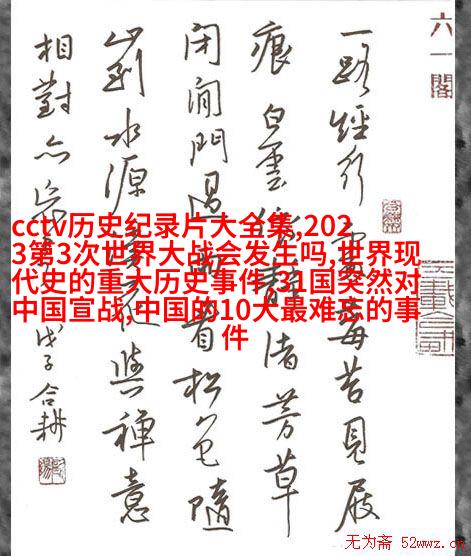 六一閣
一路經行處莓苔見屐
痕白雲静渚芳草
閉閑門過雨看松色隨
山到水源花與禅意
相對亦
戊子合耕
cctv历史纪录片大全集,202
3第3次世界大战会发生吗,世界现
代史的重大历史事件,31国突然对
中国宣战,中国的10大最难忘的事
件
无为斋 52wwz.cn